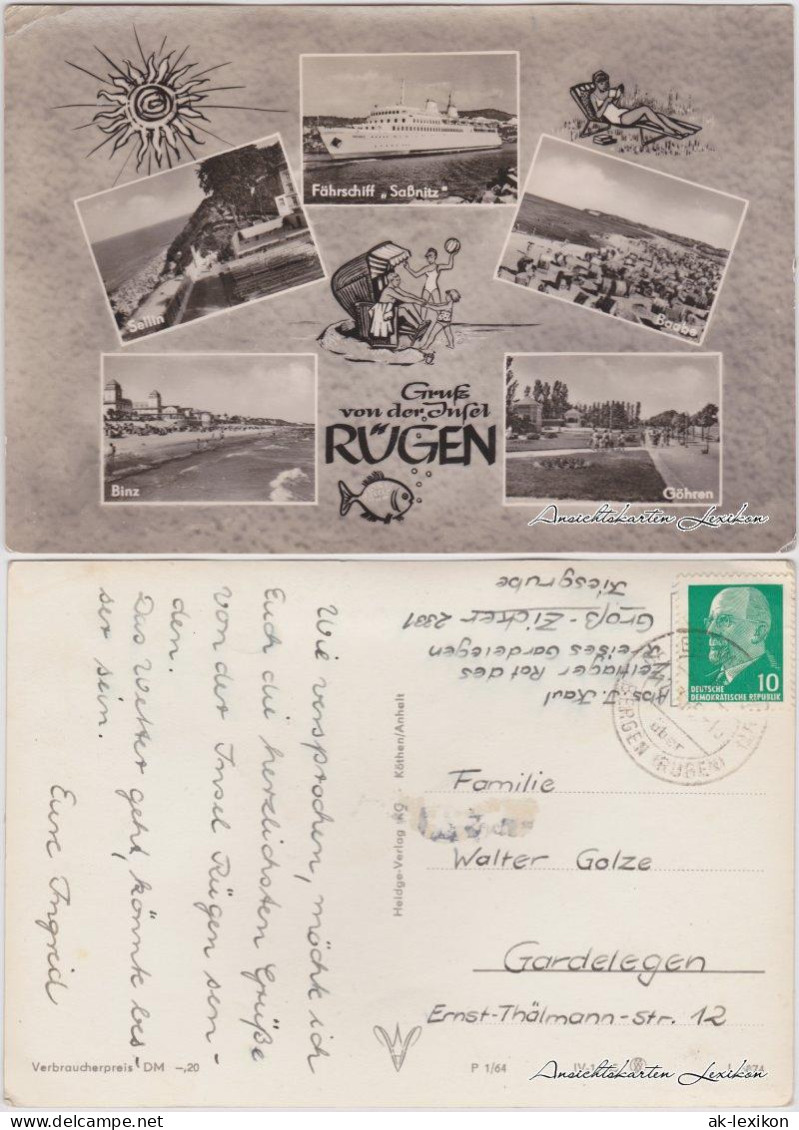 Fährschiff „Saßnitz"
Sellin
Baabe
Gruß
von der Insel
RÜGEN
Binz
Göhren
Ansichtskarten Lexikon
Wie versprochen, möcht ich
Euch die herzlichsten Grüße
von der Insel Rügen sen-
den.
Das Wetter geht, könnte bes-
ser sein.
Eure Ingrid
Abs. I. Kaul
Zeltlager Rat des
Kreises Gardelegen
Groß-Zicker 2331
Kiesgrube
DEUTSCHE
DEMOKRATISCHE REPUBLIK
10
über
BERGEN (RÜGEN)
Heldge-Verlag KG · Köthen/Anhalt
Familie
Walter Golze
Gardelegen
Ernst-Thälmann-Str. 12
Verbraucherpreis DM -,20
P 1/64
Ansichtskarten Lexikon
ak-lexikon